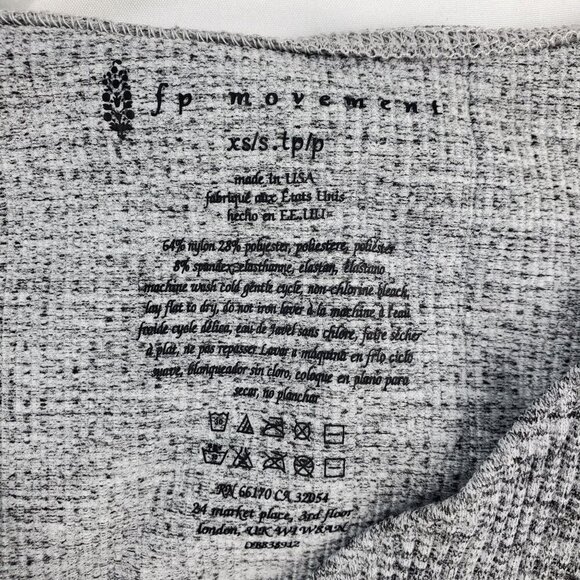 fp movement
xs/s.tp/p
made in USA
fabriqué aux États Unis
hecho en EE.UU
64% nylon 28% polyester, poliestere, poliéster
8% spandex, elasthanne, elastan, elastano
machine wash cold gentle cycle, non-chlorine bleach,
lay flat to dry, do not iron laver à la machine à l'eau
froide cycle délica, eau de Javel sans chlore, faire sécher
à plat, ne pas repasser Lavar a máquina en frío ciclo
suave, blanqueador sin cloro, coloque en plano para
secar, no planchar
RN 66170 CA 32054
24 market place, 3rd floor
london, UK W1W8AN